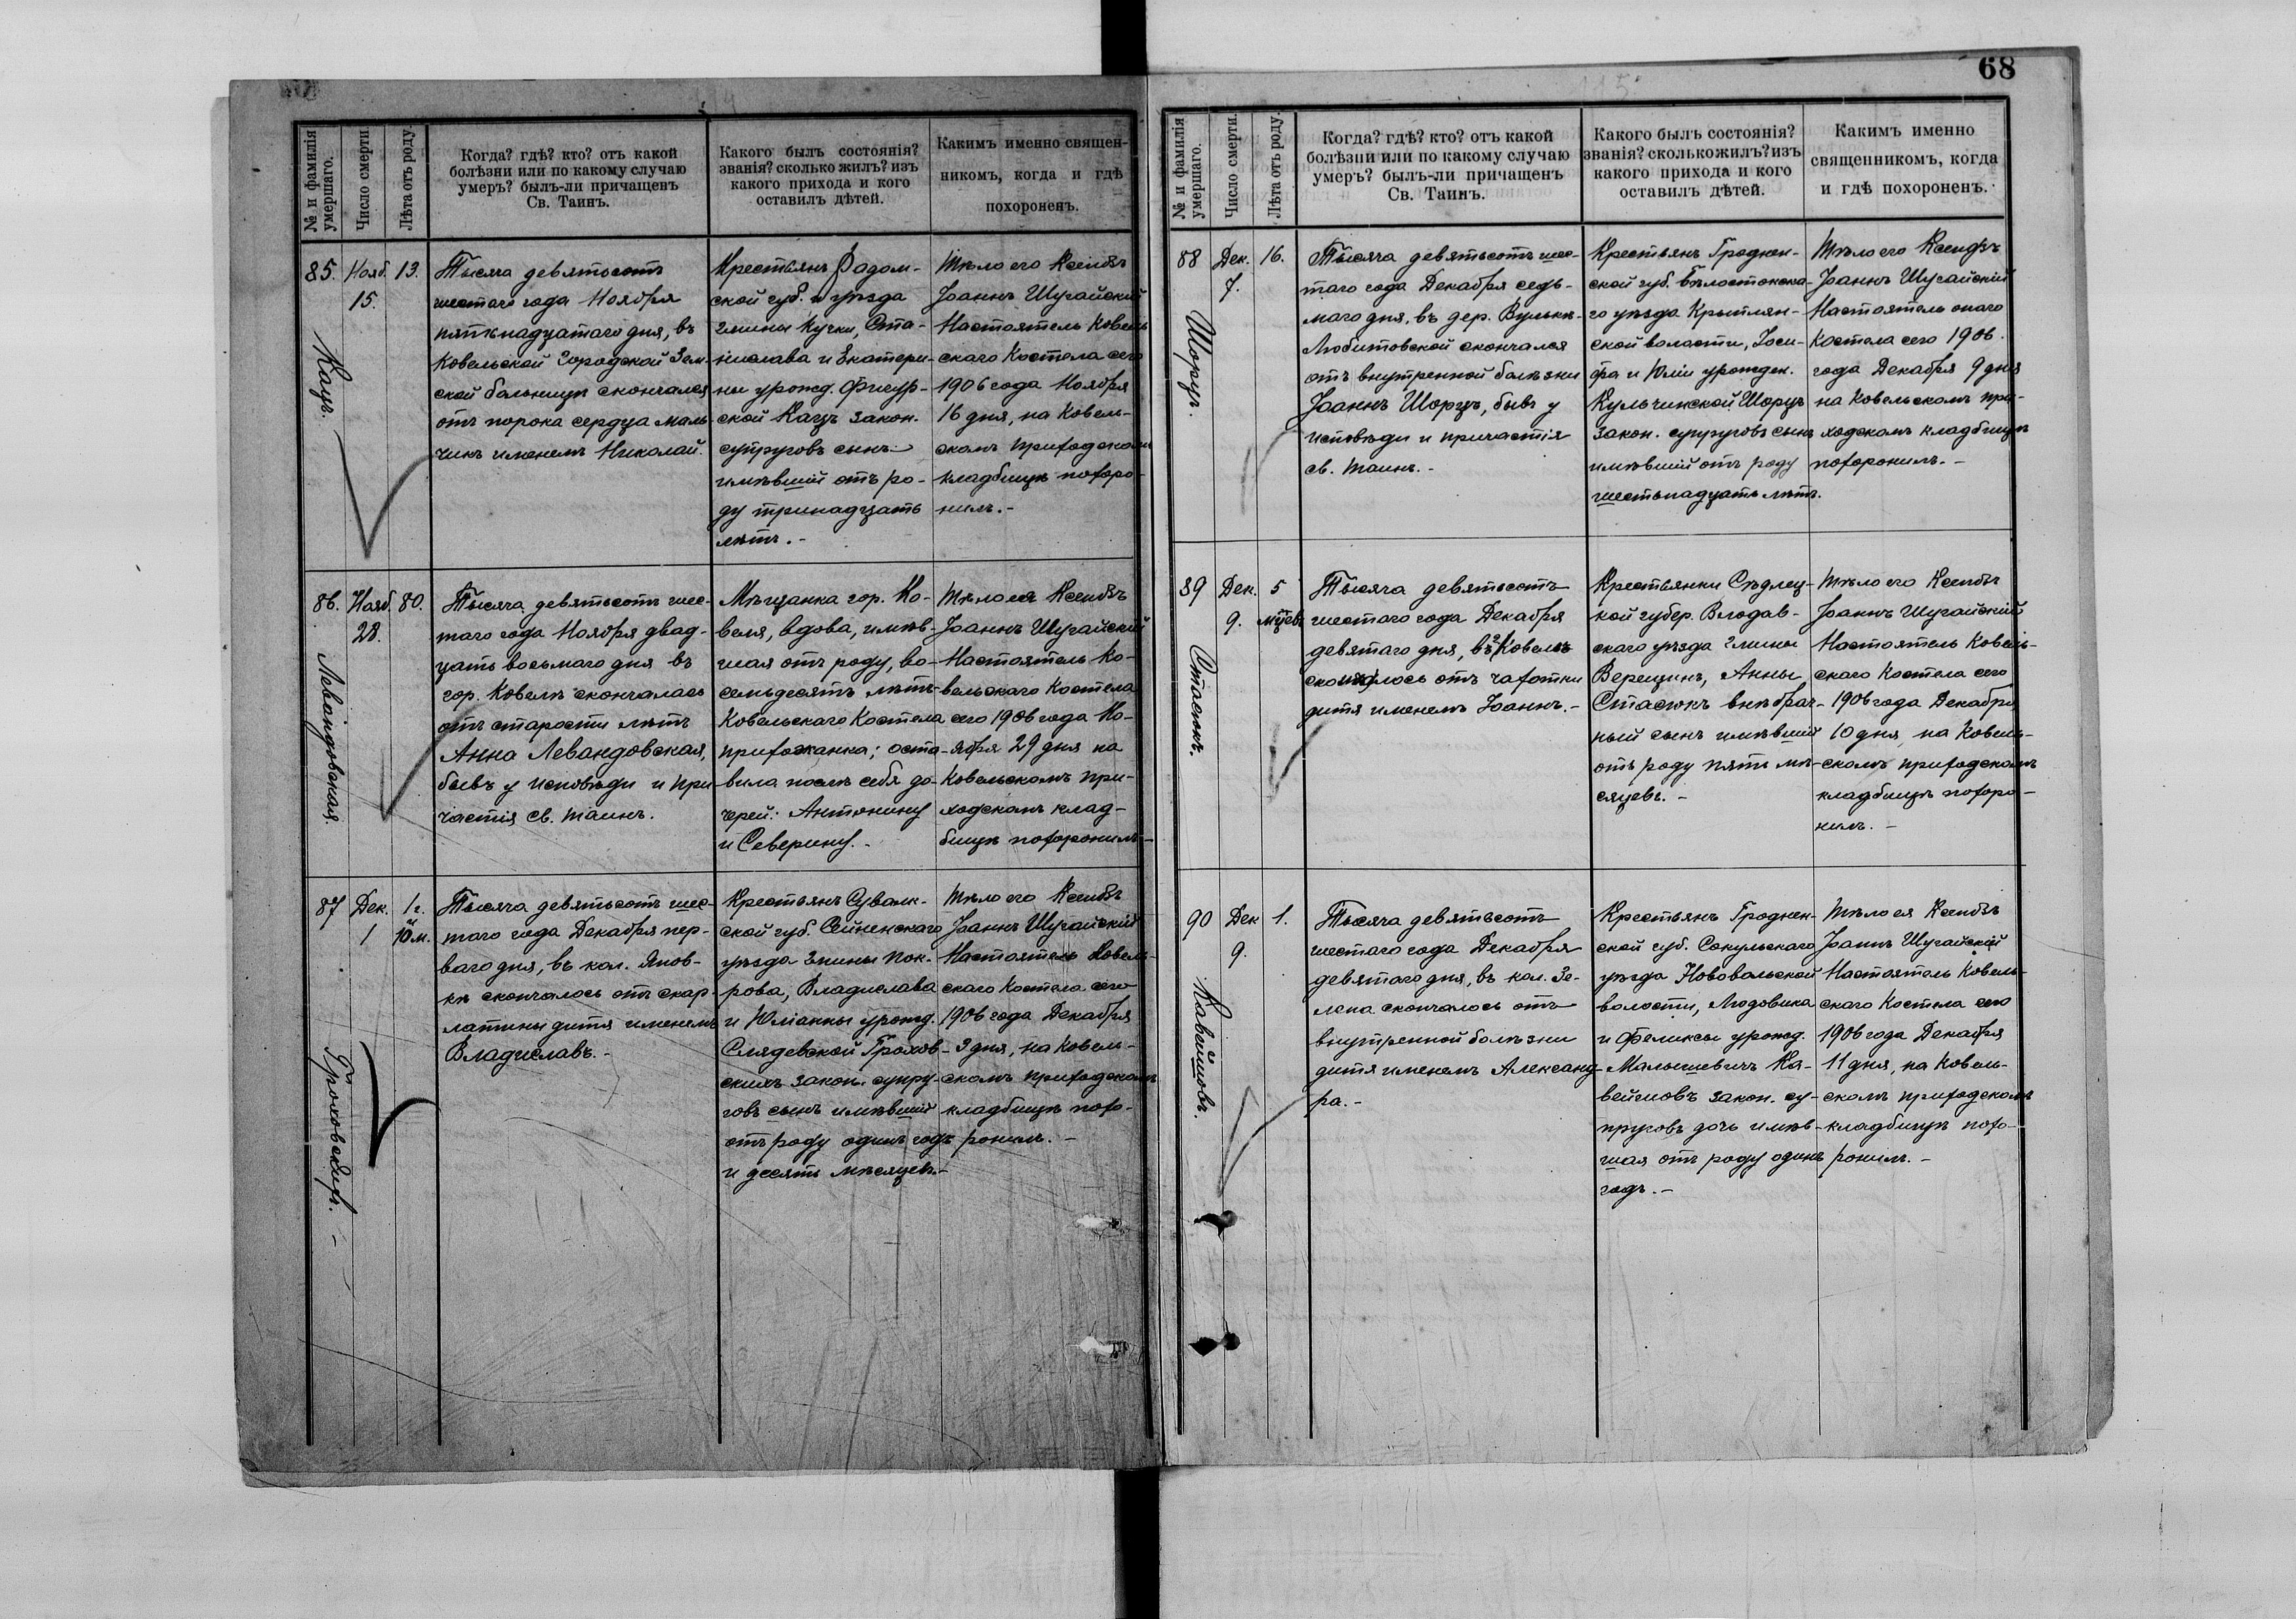 № и фамилія умершаго.
Число смерти.
Лѣта отъ роду.
Когда? гдѣ? кто? отъ какой
болѣзни или по какому случаю
умеръ? былъ-ли причащенъ
Св. Таинъ.
Какого былъ состоянія?
званія? сколько жилъ? изъ
какого прихода и кого
оставилъ дѣтей.
Какимъ именно священ-
никомъ, когда и гдѣ
похороненъ.
85.
Кацъ.
Нояб.
15.
13.
Тысяча девятьсотъ
шестого года Ноября
пятнадцатаго дня, въ
Ковельской Городской Зем-
ской больницѣ скончался
отъ порока сердца маль
чикъ именемъ Николай.
Крестьянъ Радом-
ской губ. и уѣзда
гмины Кучки, Ста-
нислава и Екатери-
ны урожд. Фигур-
ской Кацъ закон.
супруговъ сынъ
имѣвшій отъ ро-
ду тринадцать
лѣтъ.-
Тѣло его Ксендзъ
Іоаннъ Шугайскій
Настоятель Ковель
скаго Костела сего
1906 года Ноября
16 дня, на Ковель-
скомъ приходскомъ
кладбищѣ похоро-
нилъ.-
86.
Левандовская.
Нояб.
28.
80.
Тысяча девятьсотъ шес-
таго года Ноября двад-
цать восьмаго дня въ
гор. Ковелѣ скончалась
отъ старости лѣтъ
Анна Левандовская,
бывъ у исповѣди и при
частія св. таинъ.
Мѣщанка гор. Ко-
веля, вдова, имѣв-
шая отъ роду, во-
семьдесятъ лѣтъ
Ковельскаго Костела
прихожанка; оста-
вила послѣ себя до-
черей: Антонину
и Северину.-
Тѣло ея Ксендзъ
Іоаннъ Шугайскій
Настоятель Ко-
вельскаго Костела
сего 1906 года Но-
ября 29 дня на
Ковельскомъ при-
ходскомъ клад-
бищѣ похоронилъ-
87
Гроховскихъ.-
Дек.
1
1 г.
и
10 м.
Тысяча девятьсотъ шес-
таго года Декабря пер-
ваго дня, въ кол. Янов-
кѣ скончалось отъ скар-
латины дитя именемъ
Владиславъ.-
Крестьянъ Сувалк-
ской губ. Сейненскаго
уѣзда гмины Пок-
рова, Владислава
и Юліанны урожд.
Слядевской Грохов-
скихъ закон. супру-
говъ сынъ имѣвшій
отъ роду одинъ годъ
и десять мѣсяцевъ.-
Тѣло его Ксендзъ
Іоаннъ Шугайскій
Настоятель Ковель-
скаго Костела сего
1906 года Декабря
3 дня, на Ковель-
скомъ приходскомъ
кладбищѣ похо-
ронилъ.-
68
№ и фамилія умершаго.
Число смерти.
Лѣта отъ роду.
Когда? гдѣ? кто? отъ какой
болѣзни или по какому случаю
умеръ? былъ-ли причащенъ
Св. Таинъ.
Какого былъ состоянія?
званія? сколько жилъ? изъ
какого прихода и кого
оставилъ дѣтей.
Какимъ именно
священникомъ, когда
и гдѣ похороненъ.
88
Шорцъ.
Дек.
7.
16.
Тысяча девятьсотъ шес-
таго года Декабря седь-
маго дня, въ дер. Вулькѣ-
Любитовской скончался
отъ внутренной болѣзни
Іоаннъ Шорцъ, бывъ у
исповѣди и причастія
св. таинъ.-
Крестьянъ Гроднен-
ской губ. Бѣлостокска-
го уѣзда Крыплян-
ской волости, Іоси-
фа и Юліи урожден.
Кульчинской Шорцъ
закон. супруговъ сынъ
имѣвшій отъ роду
шестьнадцать лѣтъ.
Тѣло его Ксендзъ
Іоаннъ Шугайскій
Настоятель онаго
Костела сего 1906.
года Декабря 9 дня
на Ковельскомъ при-
ходскомъ кладбищѣ
похоронилъ.-
89
Стасюкъ.
Дек.
9.
5
мѣсев.
Тысяча девятьсотъ
шестаго года Декабря
девятаго дня, въ г. Ковелѣ
скончалось отъ чахотки
дитя именемъ Іоаннъ.-
Крестьянки Сѣдлец-
кой губер. Влодав-
скаго уѣзда гмины
Верещинъ, Анны
Стасюкъ внѣбрач-
ный сынъ имѣвшій
отъ роду пять мѣ-
сяцевъ.-
Тѣло его Ксендзъ
Іоаннъ Шугайскій
Настоятель Ковель-
скаго Костела сего
1906 года Декабря
10 дня, на Ковель-
скомъ приходскомъ
кладбищѣ похоро-
нилъ.-
90
Кавейшовъ.
Дек
9.
1.
Тысяча девятьсотъ
шестаго года Декабря
девятаго дня, въ кол. Зе-
лена скончалось отъ
внутренной болѣзни
дитя именемъ Александ-
ра.-
Крестьянъ Гроднен-
ской губ. Сокульскаго
уѣзда Нововольской
волости, Людовика
и Феликсы урожд.
Малышевичъ Ка-
вейшовъ закон. су-
пруговъ дочь имѣв-
шая отъ роду одинъ
годъ.-
Тѣло ея Ксендзъ
Іоаннъ Шугайскій
Настоятель Ковель-
скаго Костела сего
1906 года Декабря
11 дня, на Ковель-
скомъ приходскомъ
кладбищѣ похо-
ронилъ.-